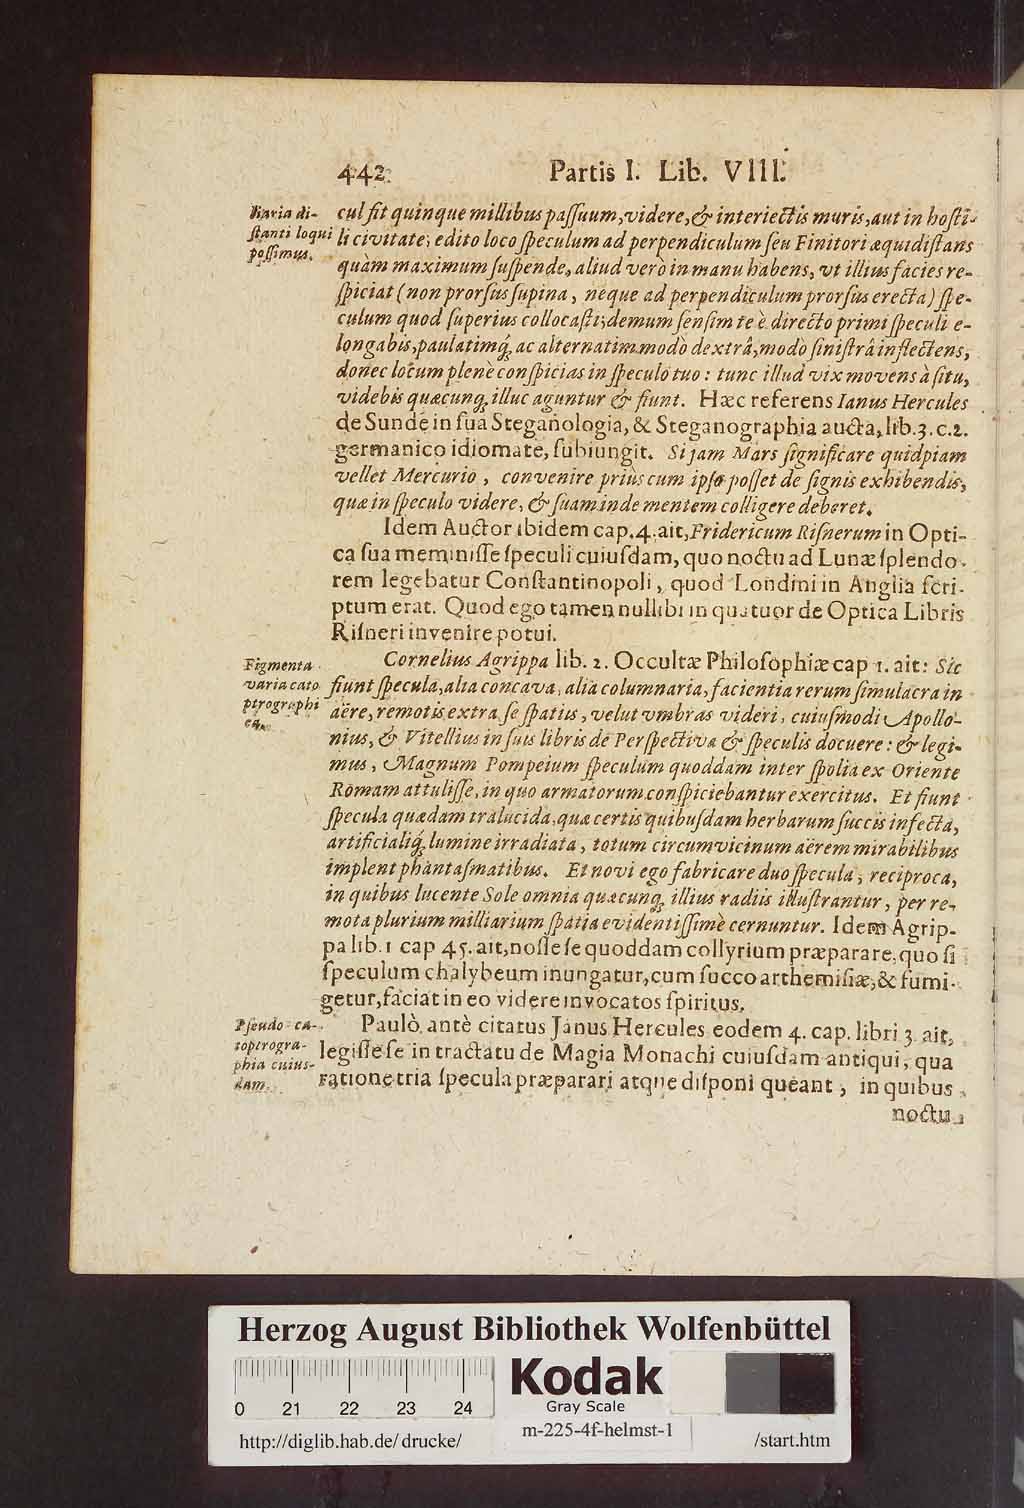 442 Partis I. Lib. VIII.
Varia di-
stanti loqui
possimus.
cul fit quinque millibus passuum, videre, & interiectis muris, aut in hosti-
li civitate; edito loco speculum ad perpendiculum seu Finitori æquidistans
quàm maximum suspende, aliud verò in manu habens, vt illius facies re-
spiciat (non prorsus supina, neque ad perpendiculum prorsus erecta) spe-
culum quod superius collocasti; demum sensim te è directo primi speculi e-
longabis, paulatimq́; ac alternatim modò dextrâ, modò sinistrâ inflectens,
donec locum plenè conspicias in speculo tuo: tunc illud vix movens à situ,
videbis quæcunq; illuc aguntur & fiunt. Hæc referens Ianus Hercules
de Sunde in sua Steganologia, & Steganographia aucta, lib. 3. c. 2.
germanico idiomate, subiungit. Si jam Mars significare quidpiam
vellet Mercurio, convenire priùs cum ipso posset de signis exhibendis,
quæ in speculo videre, & suam inde mentem colligere deberet.
Idem Auctor ibidem cap. 4. ait, Fridericum Risnerum in Opti-
ca sua meminisse speculi cuiusdam, quo noctu ad Lunæ splendo-
rem legebatur Constantinopoli, quod Londini in Anglia scri-
ptum erat. Quod ego tamen nullibi in quatuor de Optica Libris
Risneri invenire potui.
Figmenta
varia cato
ptrographi
ca.
Cornelius Agrippa lib. 2. Occultæ Philosophiæ cap 1. ait: Sic
fiunt specula, alia concava, alia columnaria, facientia rerum simulacra in
aëre, remotis extra se spatiis, velut vmbras videri, cuiusmodi Apollo-
nius, & Vitellius in suis libris de Perspectiva & speculis docuere: & legi-
mus, Magnum Pompeium speculum quoddam inter spolia ex Oriente
Romam attulisse, in quo armatorum conspiciebantur exercitus. Et fiunt
specula quædam tralucida, quæ certis quibusdam herbarum succis infecta,
artificialiq́; lumine irradiata, totum circumvicinum aërem mirabilibus
implent phantasmatibus. Et novi ego fabricare duo specula, reciproca,
in quibus lucente Sole omnia quæcunq; illius radiis illustrantur, per re-
mota plurium milliarium spatia evidentissimè cernuntur. Idem Agrip-
pa lib. 1 cap 45. ait, nosse se quoddam collyrium præparare, quo si
speculum chalybeum inungatur, cum succo arthemisiæ, & fumi-
getur, faciat in eo videre invocatos spiritus.
Pseudo-ca-
toptrogra-
phia cuius-
dam.
Paulò antè citatus Janus Hercules eodem 4. cap. libri 3. ait,
legisse se in tractatu de Magia Monachi cuiusdam antiqui, qua
ratione tria specula præparari atque disponi queant, in quibus
noctu
Herzog August Bibliothek Wolfenbüttel
0 21 22 23 24
Kodak
Gray Scale
http://diglib.hab.de/drucke/ m-225-4f-helmst-1 /start.htm